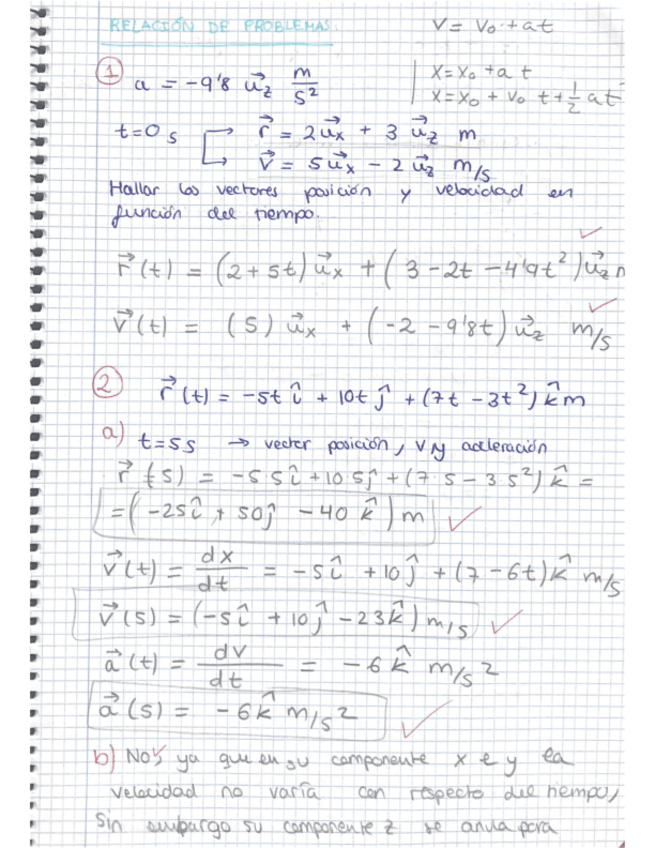 RELACIÓN DE PROBLEMAS
V = V₀ + at
① a = -9'8 u⃗z m/s²
x = x₀ + a t
x = x₀ + v₀ t + 1/2 at
t=0 s r⃗ = 2u⃗x + 3 u⃗z m
v⃗ = 5u⃗x - 2 u⃗z m/s
Hallar los vectores posición y velocidad en
función del tiempo.
r⃗(t) = (2+5t) u⃗x + (3 - 2t - 4'9t²) u⃗z
v⃗(t) = (5) u⃗x + (-2 - 9'8t) u⃗z m/s
② r⃗(t) = -5t î + 10t ĵ + (7t - 3t²) k̂ m
a) t=5s → vector posición, V y aceleración
r⃗(5) = -5·5î + 10·5ĵ + (7·5 - 3·5²) k̂ =
= (-25î + 50ĵ - 40 k̂) m
v⃗(t) = dx/dt = -5î + 10ĵ + (7 - 6t)k̂ m/s
v⃗(5) = (-5î + 10ĵ - 23k̂) m/s
a⃗(t) = dv/dt = -6k̂ m/s²
a⃗(5) = -6k̂ m/s²
b) No, ya que en su componente x e y la
velocidad no varía con respecto del tiempo,
sin embargo su componente z se anula para